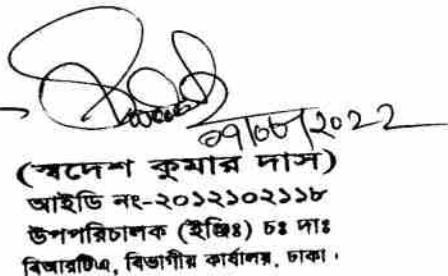 ০৭/০৮/২০২২
(স্বদেশ কুমার দাস)
আইডি নং-২০১২১০২১১৮
উপপরিচালক (ইঞ্জিঃ) চঃ দাঃ
বিআরটিএ, বিভাগীয় কার্যালয়, ঢাকা।